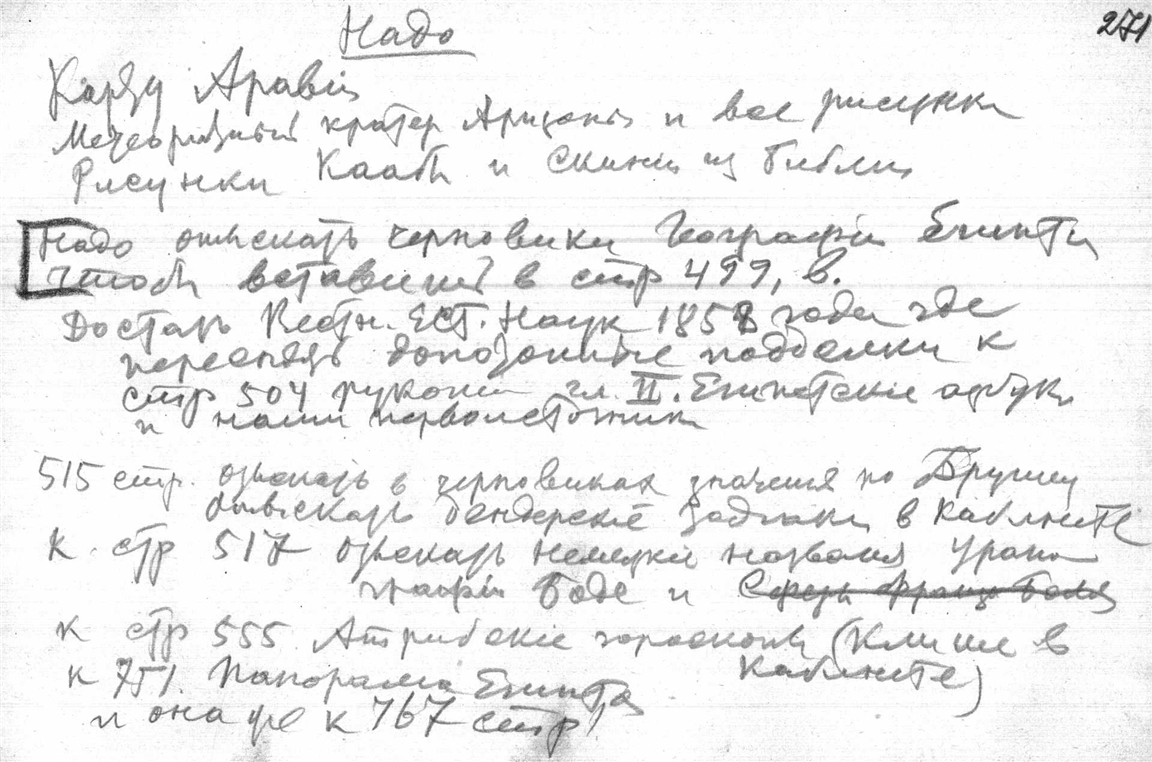 271
Надо
Карту Аравіи
Метеоритный кратер Аризоны и все рисунки
Рисунки Каабы и Скиніи из библіи
Надо отыскать черновики Географіи Египта
чтобы вставить в стр 499, в.
Достать Вестн. Ест. Наук 1858 года где
допотопные подделки к
стр 504 гл. II. Египетскіе
и наши первоисточники
515 стр. отыскать в черновиках значения по Бругшу
отыскать бендерскіе зодіаки в Кабинете
к стр 517 отыскать немецкіе названія Урано
графіи Боде и
к стр 555 Атрибскіе гороскопы (Клише в
Кабинете)
к 751. Панорама Египта
и она же к 767 стр!